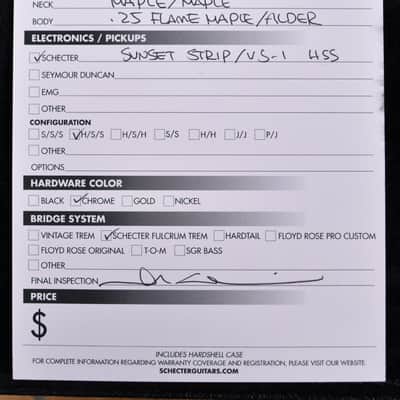 NECK MAPLE/MAPLE
BODY .25 FLAME MAPLE/ALDER
ELECTRONICS / PICKUPS
SCHECTER SUNSET STRIP/VS-1 HSS
SEYMOUR DUNCAN
EMG
OTHER
CONFIGURATION
S/S/S H/S/S H/S/H S/S H/H J/J P/J
OTHER
OPTIONS
HARDWARE COLOR
BLACK CHROME GOLD NICKEL
BRIDGE SYSTEM
VINTAGE TREM SCHECTER FULCRUM TREM HARDTAIL FLOYD ROSE PRO CUSTOM
FLOYD ROSE ORIGINAL T-O-M SGR BASS
OTHER
FINAL INSPECTION
PRICE
$
INCLUDES HARDSHELL CASE
FOR COMPLETE INFORMATION REGARDING WARRANTY COVERAGE AND REGISTRATION, PLEASE VISIT OUR WEBSITE.
SCHECTERGUITARS.COM